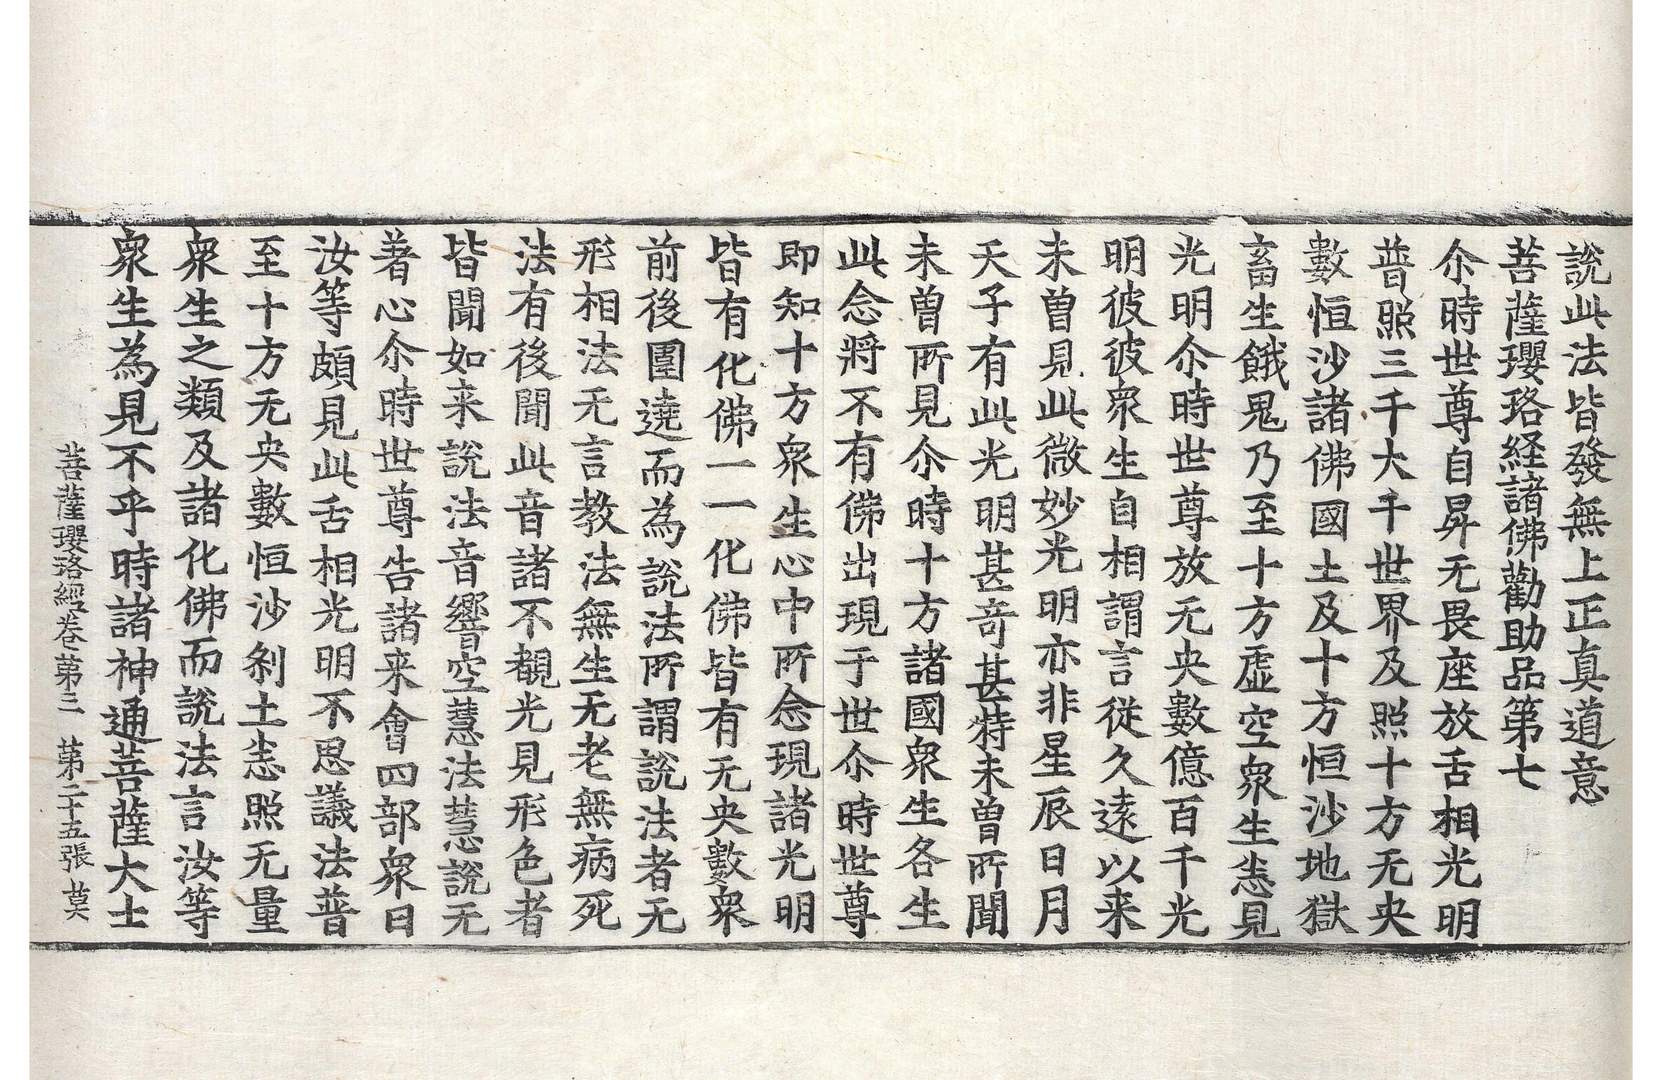 說此法皆發無上正真道意
菩薩瓔珞経諸佛勸助品第七
尒時世尊自昇无畏座放舌相光明
普照三千大千世界及照十方无央
數恒沙諸佛國土及十方恒沙地獄
畜生餓鬼乃至十方虛空衆生恚見
光明尒時世尊放无央數億百千光
明彼彼衆生自相謂言從久遠以来
未曽見此微妙光明亦非星辰日月
天子有此光明甚奇甚特未曽所聞
未曽所見尒時十方諸國衆生各生
此念将不有佛出現于世尒時世尊
即知十方衆生心中所念現諸光明
皆有化佛一一化佛皆有无央數衆
前後圍遶而為說法所謂說法者无
形相法无言教法無生无老無病死
法有後聞此音諸不覩光見形色者
皆聞如来說法音響空慧法慧說无
著心尒時世尊告諸来會四部衆曰
汝等頗見此舌相光明不思議法普
至十方无央數恒沙刹土恚照无量
衆生之類及諸化佛而說法言汝等
衆生為見不乎時諸神通菩薩大士
菩薩瓔珞經卷第三 第二十五張 莫